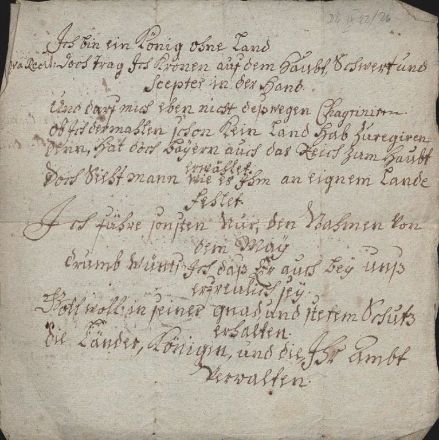 Ich bin ein König ohne Land
doch trag Ich Kronen auf dem Haubt, Schwert und
Scepter in der Hand
und darf mich eben nicht deßwegen Chagrinirn
ob Ich dermahlen schon Kein Land hab zu regiren
denn, hat doch Bayern auch das Reich zum Haubt
erwählet
doch sieht mann wie es Ihm an eignem Lande
fehlet
Ich führe sonsten Nur, den Nahmen Von
dem May
drumb wünsch Ich daß Er auch bey unß
erfreulich sey.
Gott woll in seiner gnad und stetem Schutz
erhalten.
die Länder, Königin, und die Ihr Ambt
Verwalten.